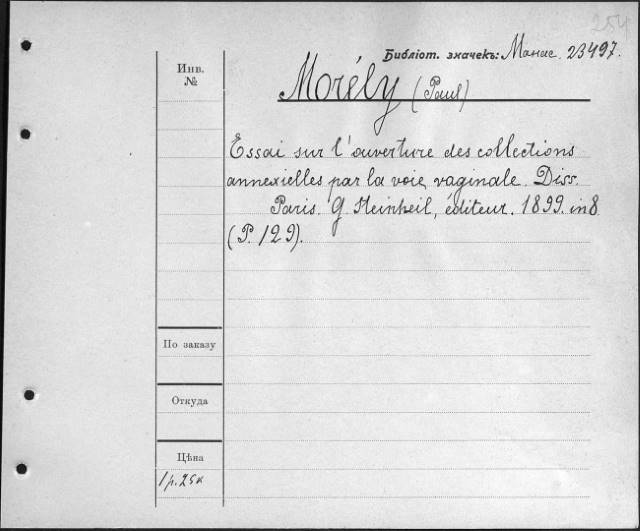 254
Библіот. значекъ: Манас. 23497.
Инв.
№
Morély (Paul)
Essai sur l'ouverture des collections
annexielles par la voie vaginale. Diss.
Paris. G. Steinheil, éditeur. 1899. in 8.
(P. 129).
По заказу
Откуда
Цѣна
1 р. 25 к